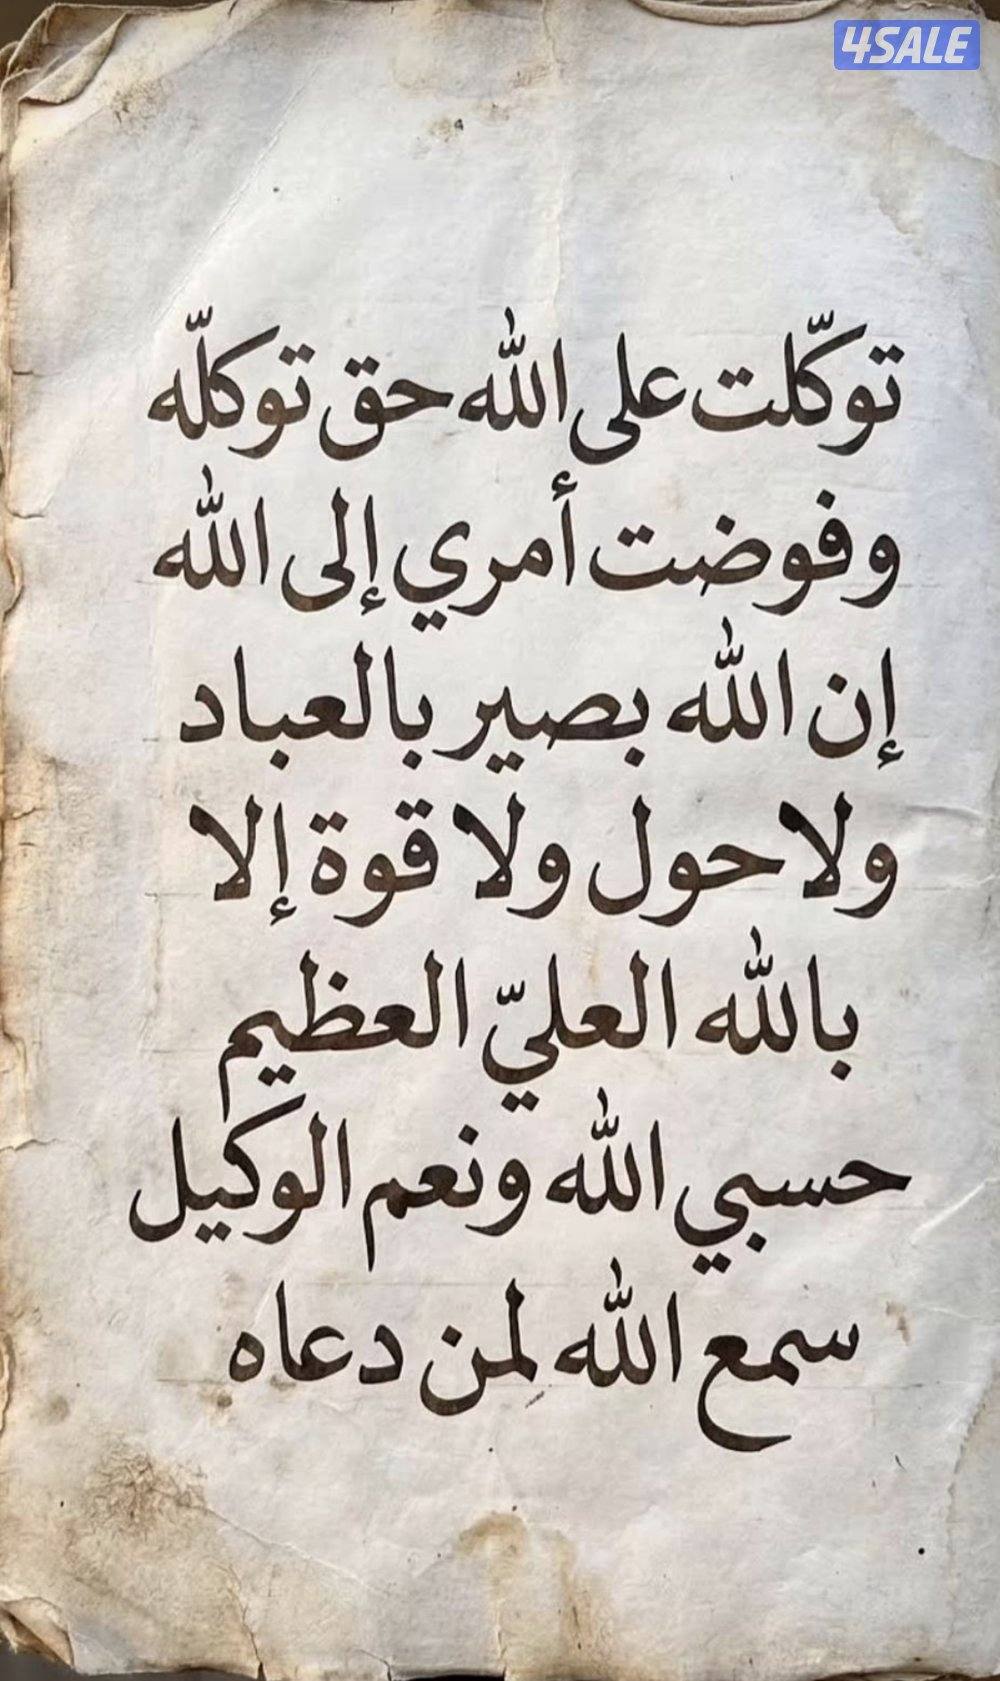 4SALE
توكّلت على الله حق توكلّه
وفوضت أمري إلى الله
إن الله بصير بالعباد
ولا حول ولا قوة إلا
بالله العليّ العظيم
حسبي الله ونعم الوكيل
سمع الله لمن دعاه